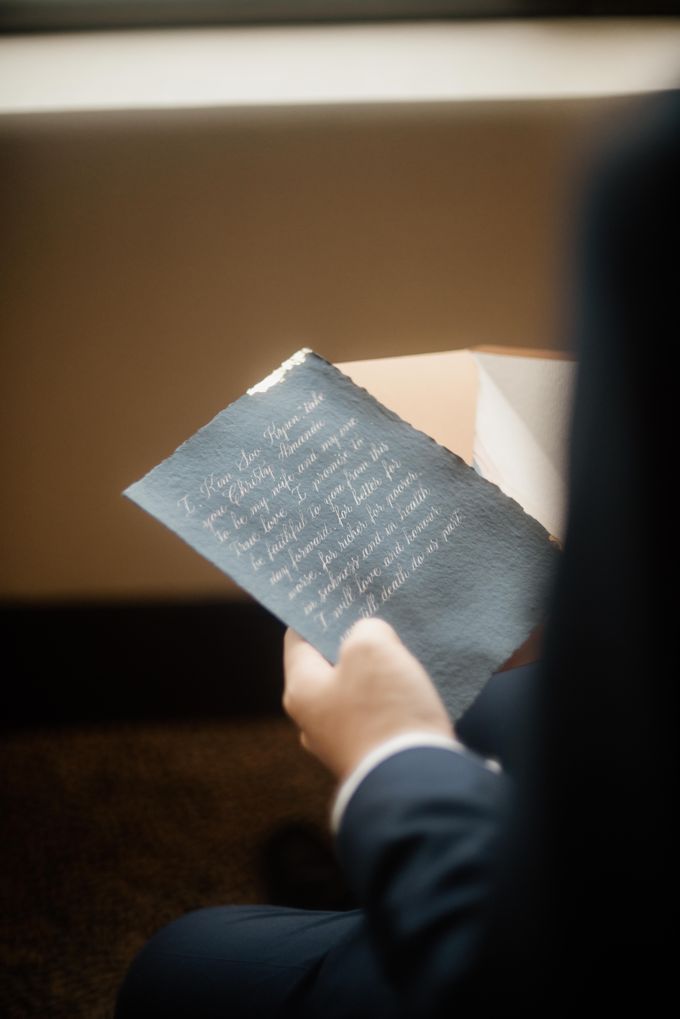 I Kim Soo Kyeen, take
you Christy Amanda
to be my wife and my one
True love. I promise to
be faithful to you from this
day forward, for better for
worse, for richer for poorer,
in sickness and in health.
I will love and honour
till death do us part.